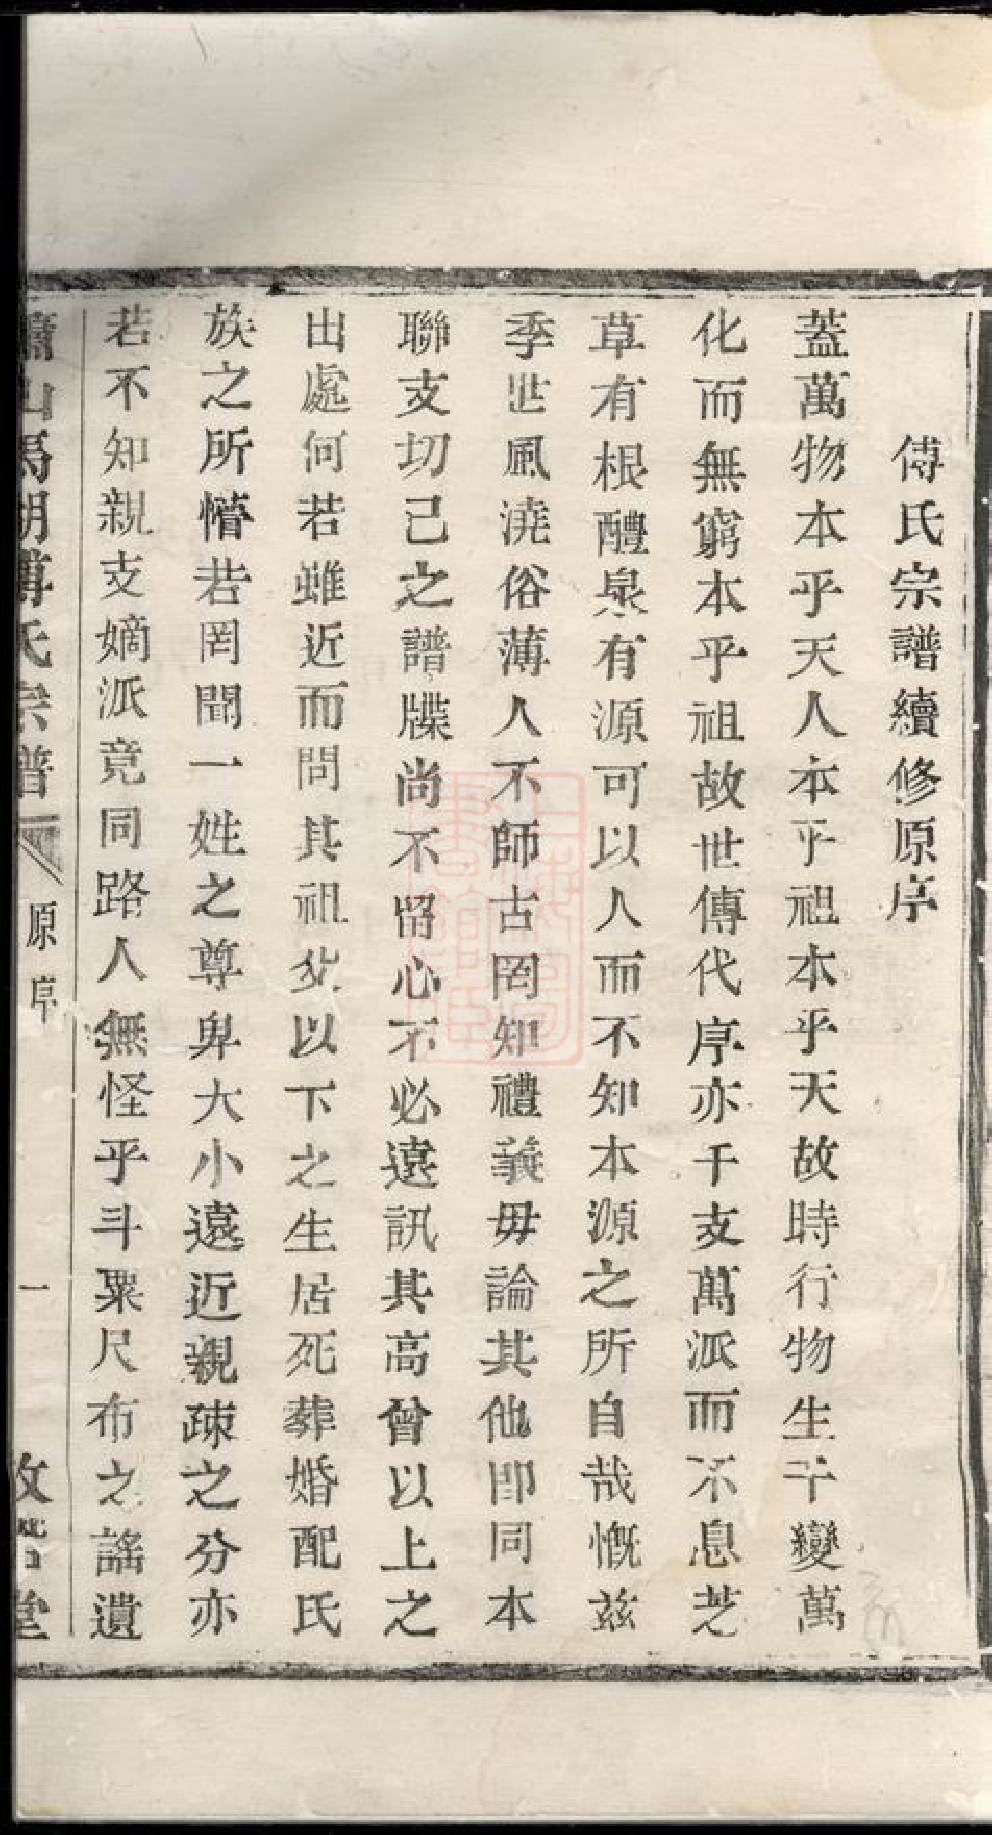 傅氏宗譜續修原序
蓋萬物本乎天人本乎祖本乎天故時行物生千變萬
化而無窮本乎祖故世傳代序亦千支萬派而不息芝
草有根醴泉有源可以人而不知本源之所自哉慨茲
季世風澆俗薄人不師古罔知禮義毋論其他即同本
聯支切己之譜牒尚不留心不必遠訊其高曾以上之
出處何若雖近而問其祖父以下之生居死葬婚配氏
族之所懵若罔聞一姓之尊卑大小遠近親疎之分亦
若不知親支嫡派竟同路人無怪乎斗粟尺布之謠遺
蕭山馬湖傅氏宗譜
原序
一
堂